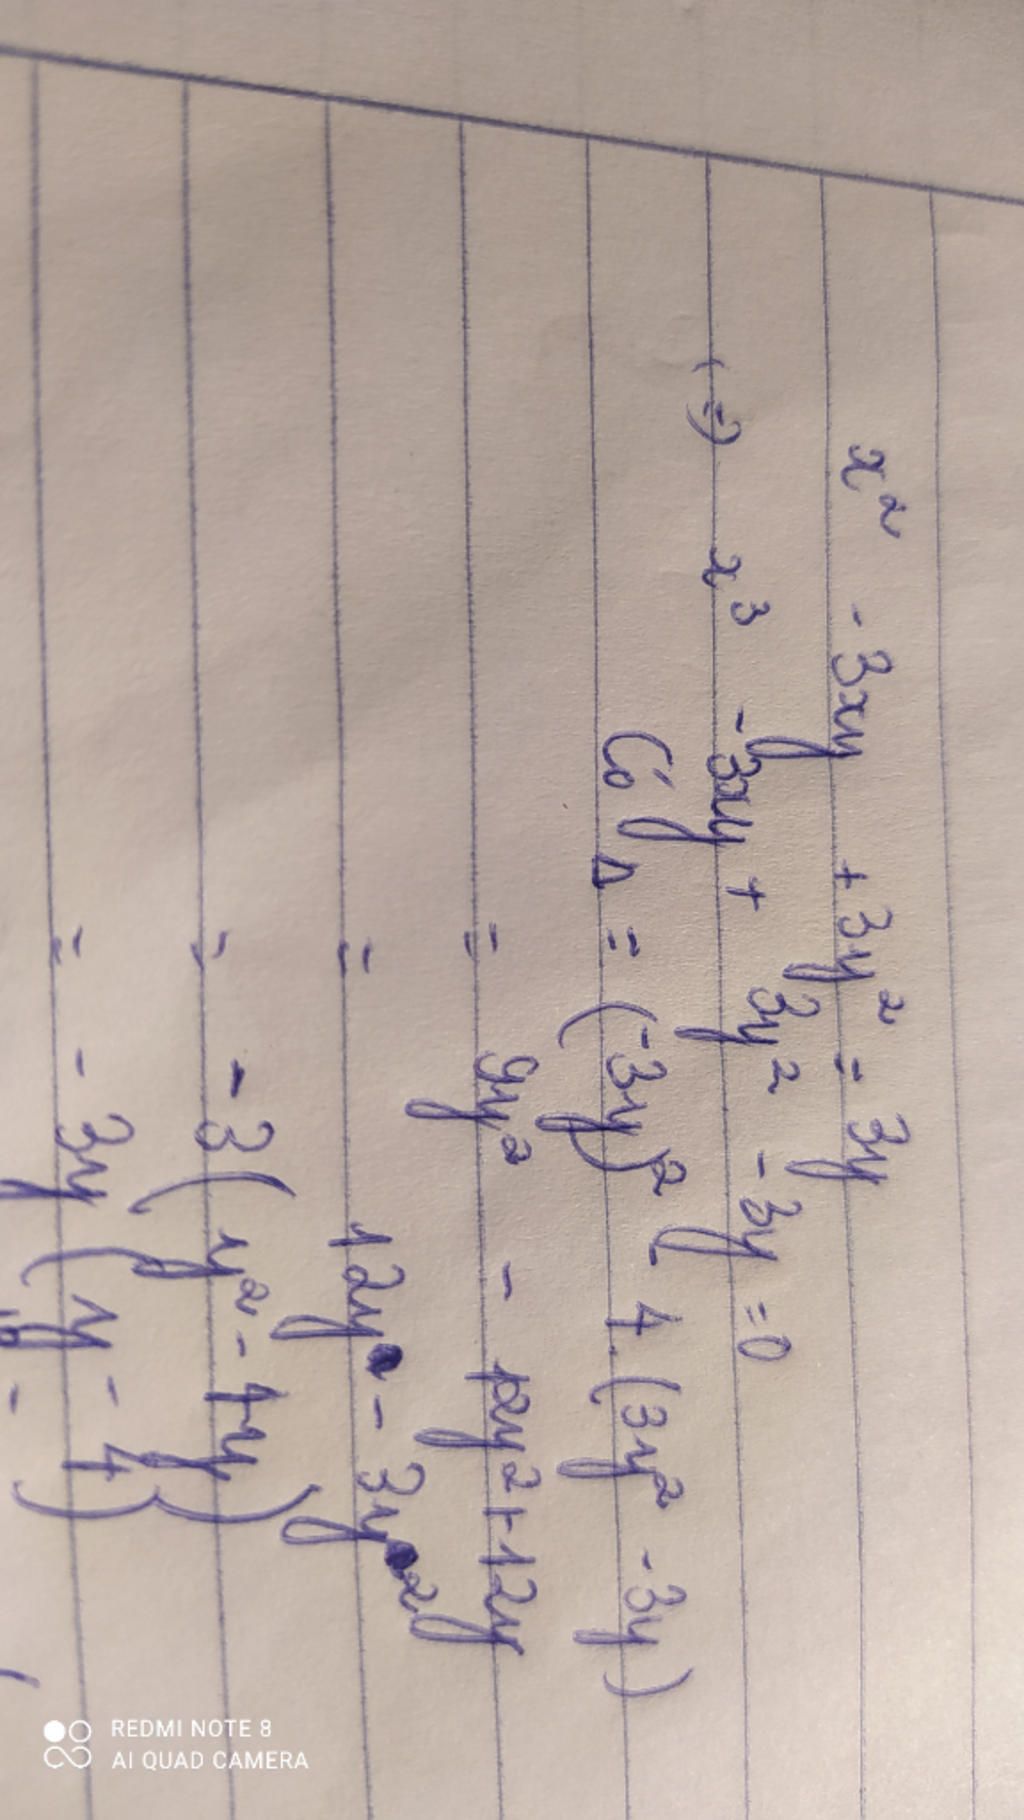 x² - 3xy + 3y² = 3y
(=) x³ - 3xy + 3y² - 3y = 0
Có Δ = (-3y)² - 4.(3y² - 3y)
= 9y² - 12y² + 12y
= 12y - 3y²
= -3(y² - 4y)
= -3y(y - 4)
REDMI NOTE 8
AI QUAD CAMERA